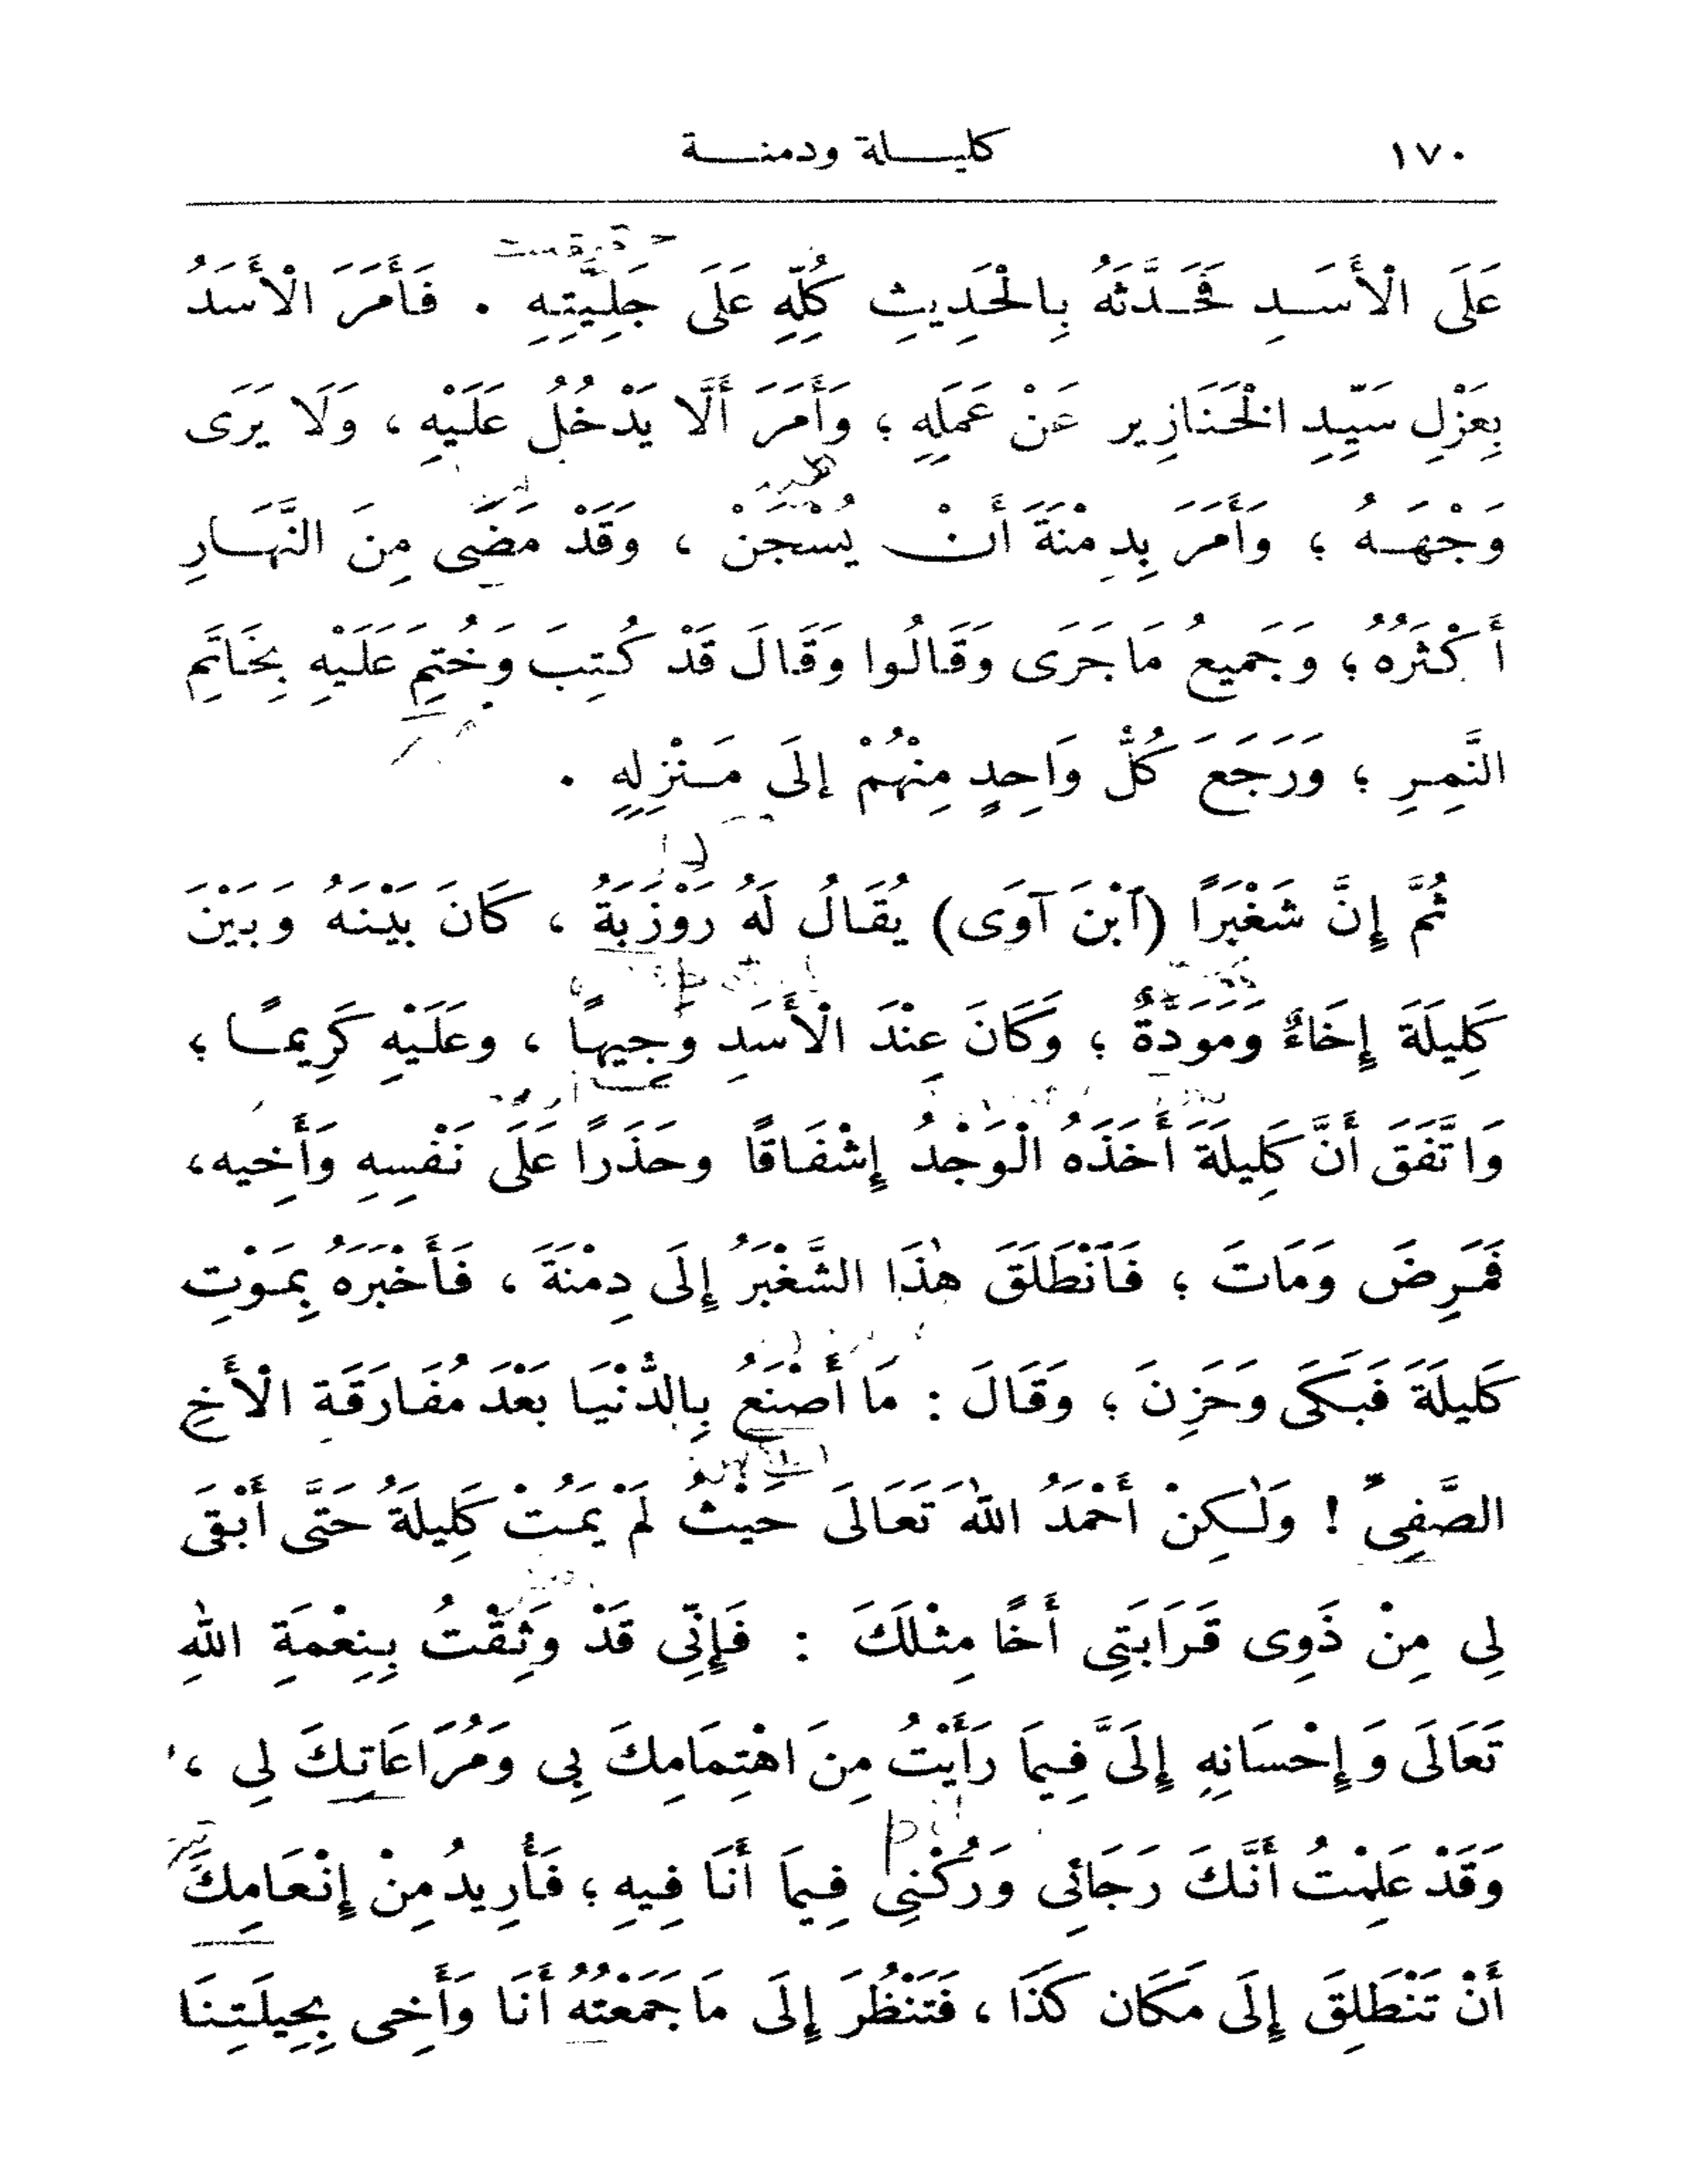 ١٧٠ كليلة ودمنة
عَلَى الْأَسَدِ فَحَدَّثَهُ بِالْحَدِيثِ كُلِّهِ عَلَى جَلِيَّتِهِ . فَأَمَرَ الْأَسَدُ
بِعَزْلِ سَيِّدِ الْخَنَازِير عَنْ عَمَلِهِ ؛ وَأَمَرَ أَلَّا يَدْخُلُ عَلَيْهِ ، وَلَا يَرَى
وَجْهَهُ ؛ وَأَمَرَ بِدِمْنَةَ أَنْ يُسْجَنْ ، وَقَدْ مَضَى مِنَ النَّهَارِ
أَكْثَرُهُ ؛ وَجَمِيعُ مَا جَرَى وَقَالُوا وَقَالَ قَدْ كُتِبَ وَخُتِمَ عَلَيْهِ بِخَاتَمِ
النَّمِرِ ؛ وَرَجَعَ كُلُّ وَاحِدٍ مِنْهُمْ إلَى مَنْزِلِهِ .
ثُمَّ إِنَّ شَغْبَرًا (ٱبْنَ آوَى) يُقَالُ لَهُ رَوْزَبَةُ ، كَانَ بَيْنَهُ وَبَيْنَ
كَلِيلَةَ إِخَاءٌ وَمَوَدَّةٌ ؛ وَكَانَ عِنْدَ الْأَسَدِ وَجِيهًا ، وعَلَيْهِ كَرِيمًا ؛
وَاتَّفَقَ أَنَّ كَلِيلَةَ أَخَذَهُ الْوَجْدُ إِشْفَاقًا وحَذَرًا عَلَى نَفْسِهِ وَأَخِيه،
فَمَرِضَ وَمَاتَ ؛ فَٱنْطَلَقَ هٰذَا الشَّغْبَرُ إِلَى دِمْنَةَ ، فَأَخْبَرَهُ بِمَوْتِ
كَلِيلَةَ فَبَكَى وَحَزِنَ ؛ وَقَالَ : مَا أَصْنَعُ بِالدُّنْيَا بَعْدَ مُفَارَقَةِ الْأَخِ
الصَّفِىِّ ! وَلٰكِنْ أَحْمَدُ اللهَ تَعَالَى حَيْثُ لَمْ يَمُتْ كَلِيلَةُ حَتَّى أَبْقَى
لِى مِنْ ذَوِى قَرَابَتِى أَخًا مِثْلَكَ : فَإِنِّى قَدْ وَثِقْتُ بِنِعْمَةِ اللهِ
تَعَالَى وَإِحْسَانِهِ إِلَىَّ فِيمَا رَأَيْتُ مِنَ اهْتِمَامِكَ بِى وَمُرَاعَاتِكَ لِى ،
وَقَدْ عَلِمْتُ أَنَّكَ رَجَائِى وَرُكْنِى فِيمَا أَنَا فِيهِ ؛ فَأُرِيدُ مِنْ إِنْعَامِكَ
أَنْ تَنْطَلِقَ إِلَى مَكَان كَذَا ، فَتَنْظُرَ إِلَى مَا جَمَعْتُهُ أَنَا وَأَخِى بِحِيلَتِنَا